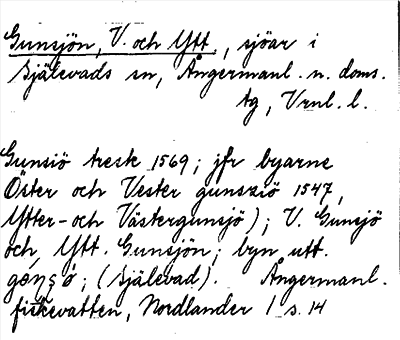 Gunsjön, V. och Ytt., sjöar i
Själevads sn, Ångermanl. n. doms.
tg, Vrnl. l.
Gunsiö tresk 1569; jfr byarne
Öster och Vester gunsziö 1547,
Ytter- och Västergunsjö); V. Gunsjö
och Ytt. Gunsjön; byn utt.
(Själevad). Ångermanl.
fiskevatten, Nordlander 1 s. 14